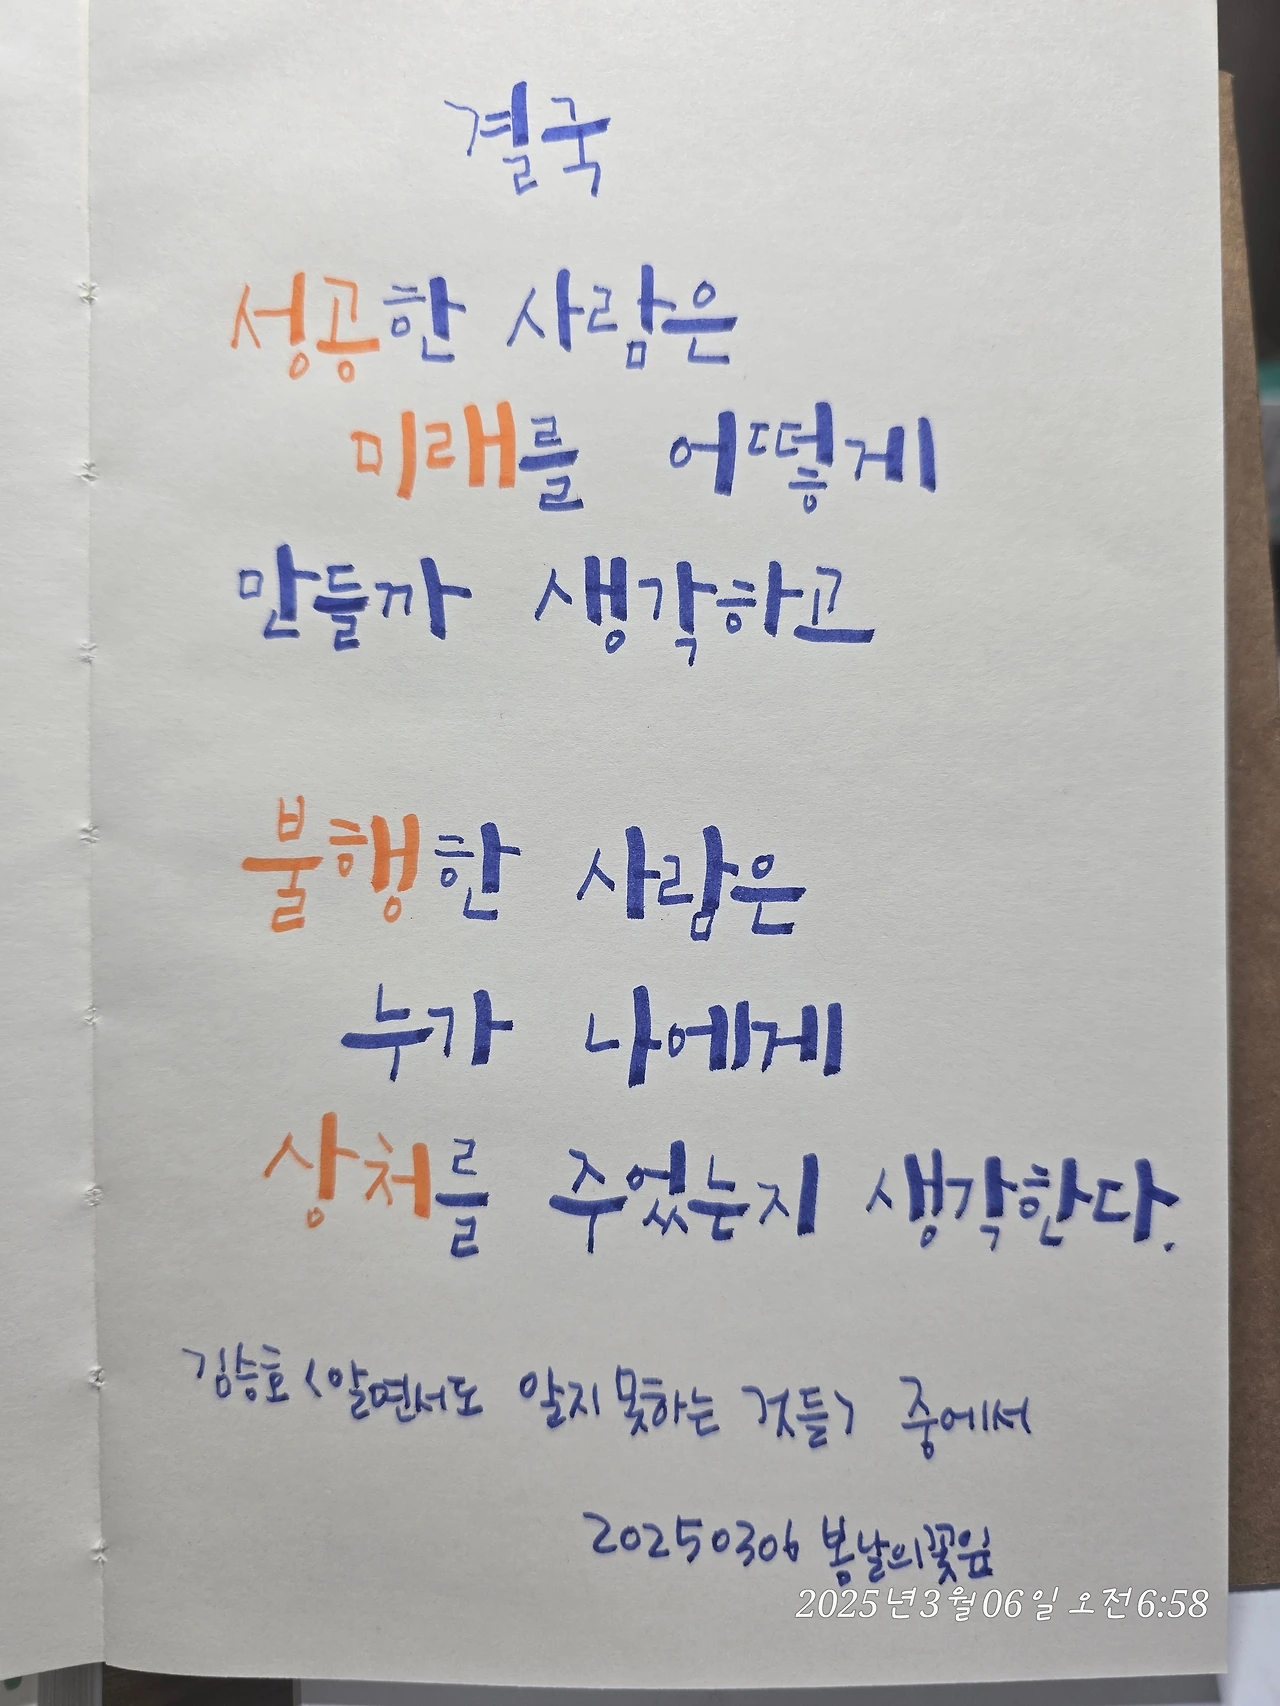 결국
성공한 사람은
미래를 어떻게
만들까 생각하고
불행한 사람은
누가 나에게
상처를 주었는지 생각한다.
김승호 <알면서도 알지 못하는 것들> 중에서
20250306 봄날의꽃잎
2025년3월06일 오전6:58